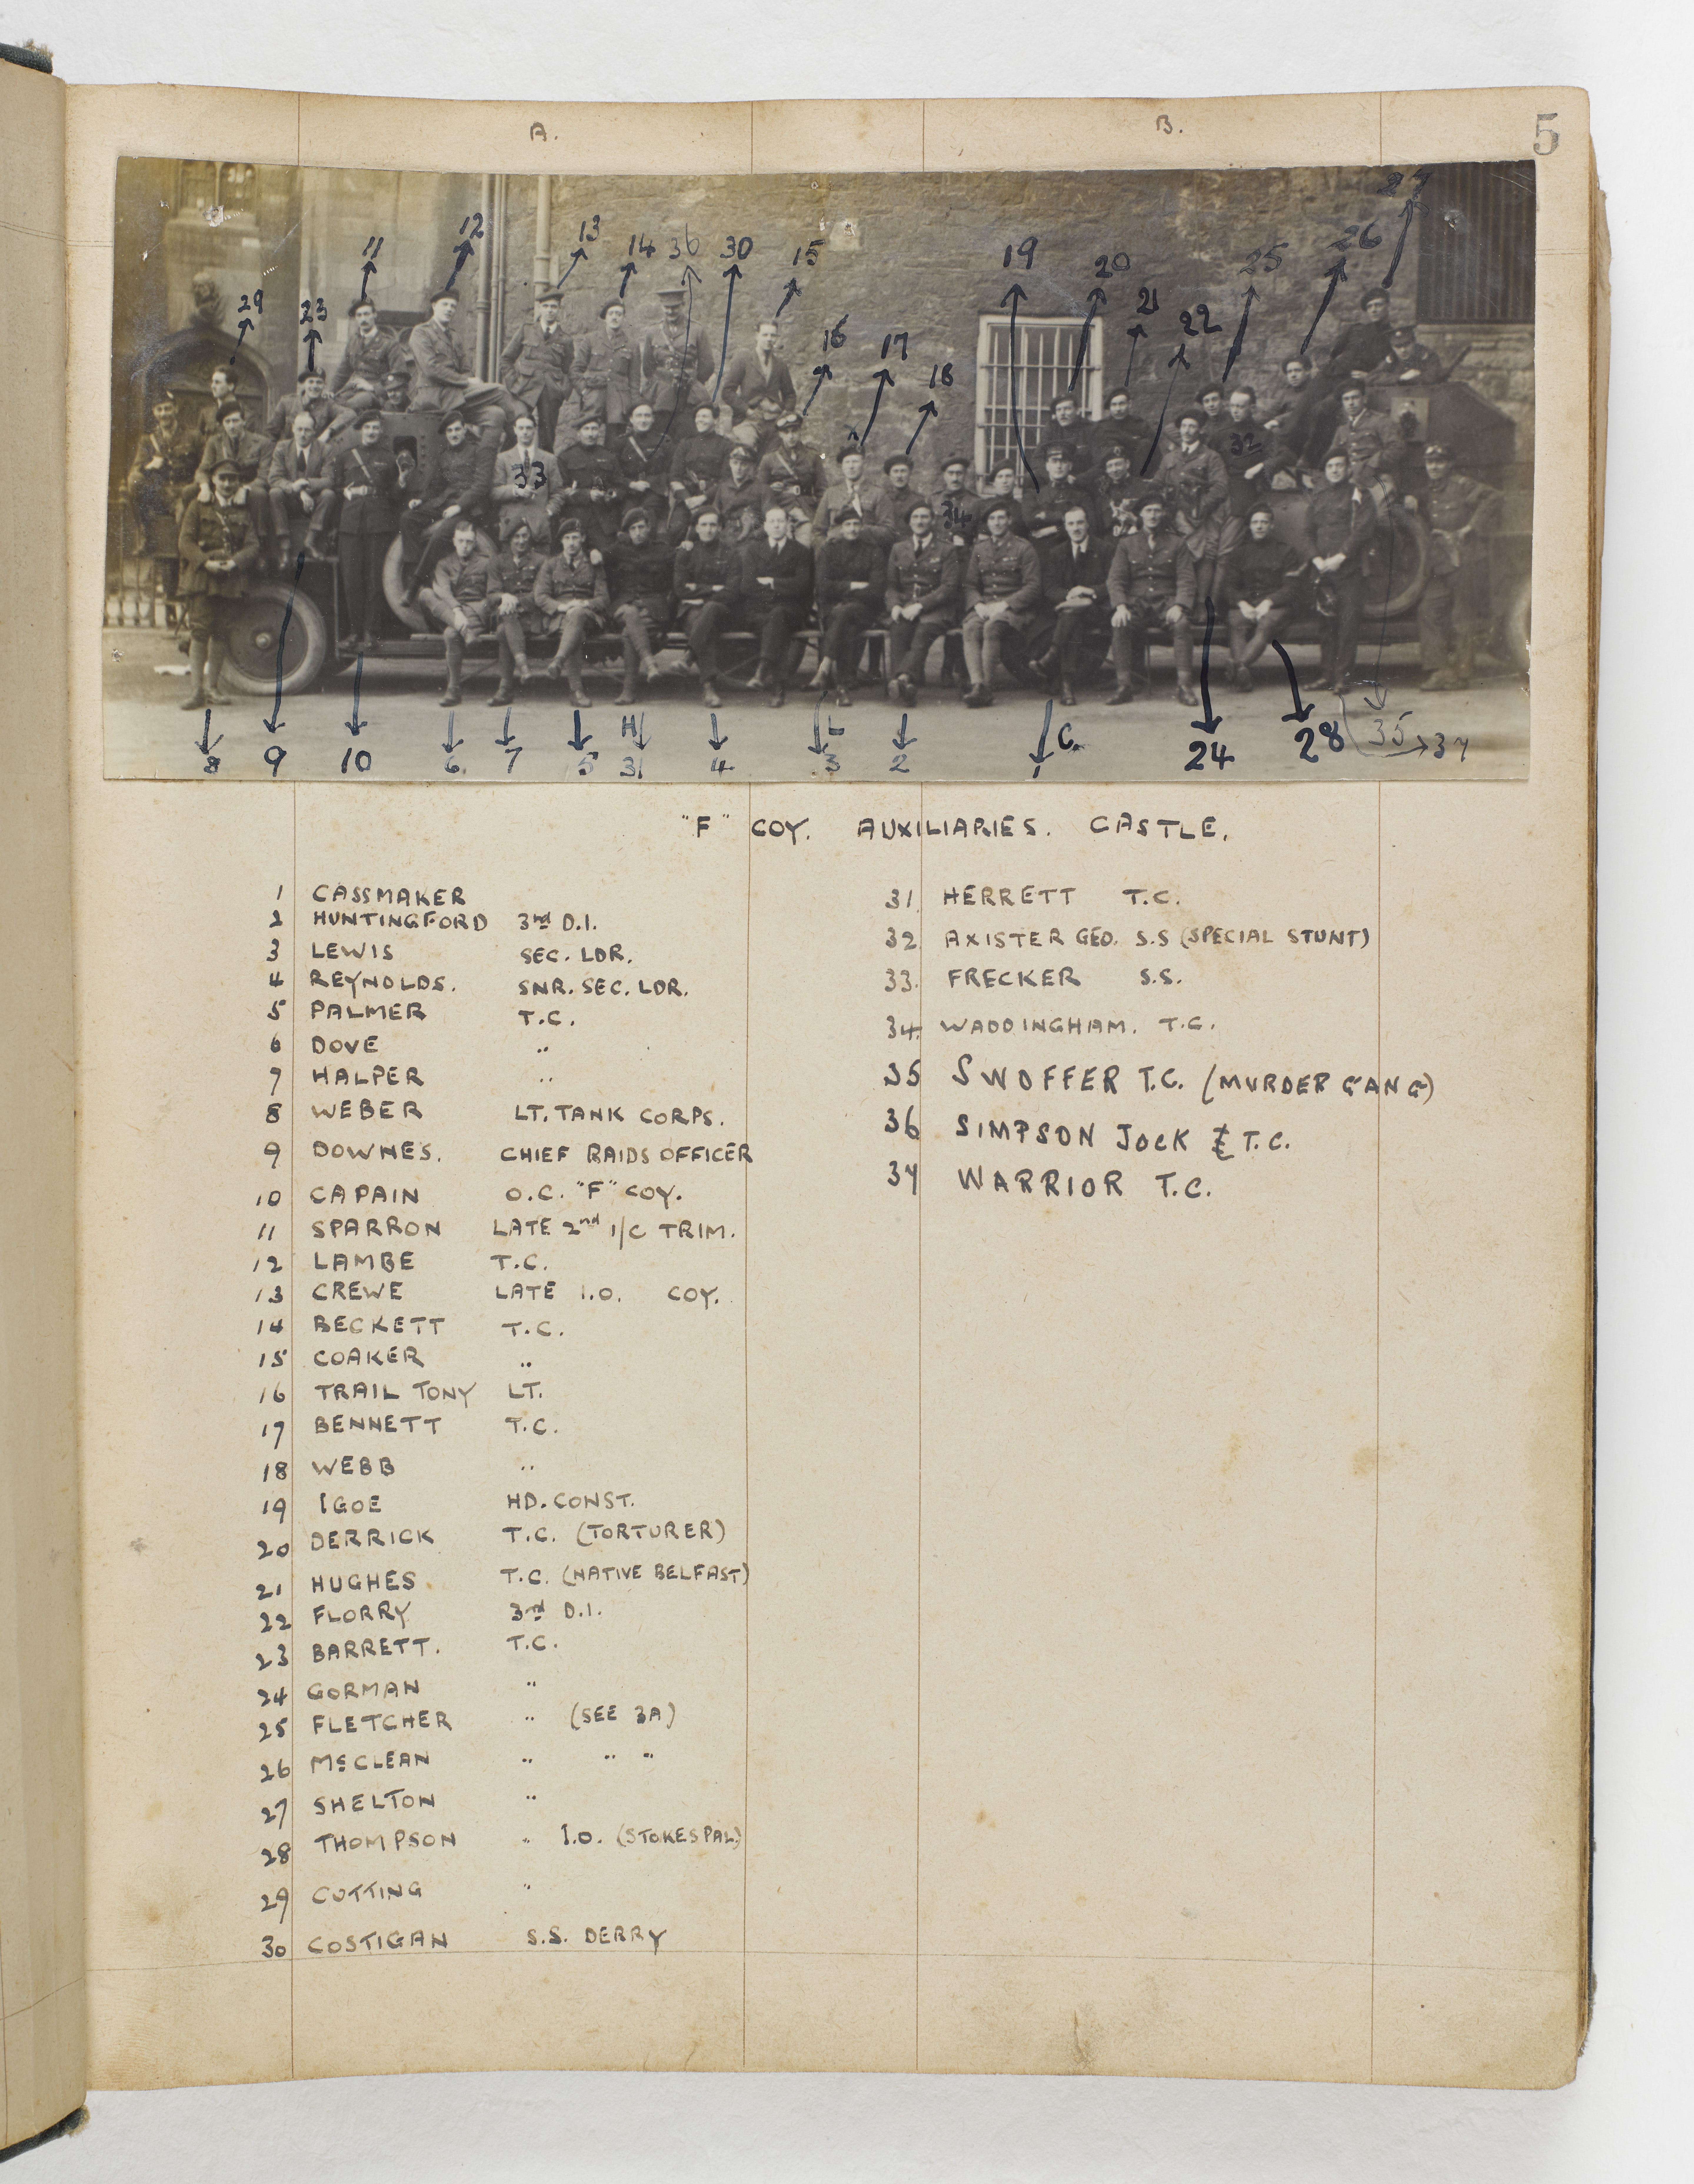 A. B. 5
27
12 13 26
11 14 36 30 15 19 20 25
29 23 21 22
16 17 18
32
33
34
H L C.
8 9 10 6 7 5 31 4 3 2 1 24 28 35 37
"F" COY. AUXILIARIES. CASTLE.
1 CASSMAKER
2 HUNTINGFORD 3rd D.I.
3 LEWIS SEC. LDR.
4 REYNOLDS. SNR. SEC. LDR.
5 PALMER T.C.
6 DOVE "
7 HALPER "
8 WEBER LT. TANK CORPS.
9 DOWNES. CHIEF RAIDS OFFICER
10 CAPAIN O.C. "F" COY.
11 SPARRON LATE 2nd I/C TRIM.
12 LAMBE T.C.
13 CREWE LATE I.O. COY.
14 BECKETT T.C.
15 COAKER "
16 TRAIL TONY LT.
17 BENNETT T.C.
18 WEBB "
19 IGOE HD. CONST.
20 DERRICK T.C. (TORTURER)
21 HUGHES T.C. (NATIVE BELFAST)
22 FLORRY 3rd D.I.
23 BARRETT. T.C.
24 GORMAN "
25 FLETCHER " (SEE 3A)
26 McCLEAN " " "
27 SHELTON "
28 THOMPSON " I.O. (STOKES PAL)
29 COTTING "
30 COSTIGAN S.S. DERRY
31. HERRETT T.C.
32 AXISTER GEO. S.S (SPECIAL STUNT)
33. FRECKER S.S.
34. WADDINGHAM. T.C.
35 SWOFFER T.C. (MURDER GANG)
36 SIMPSON JOCK T.C.
37 WARRIOR T.C.